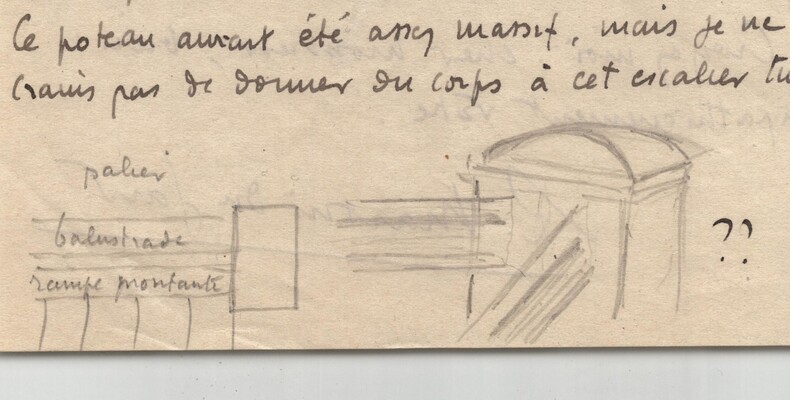 Ce poteau aurait été assez massif, mais je ne
crains pas de donner du corps à cet escalier
palier
balustrade
rampe montante
??